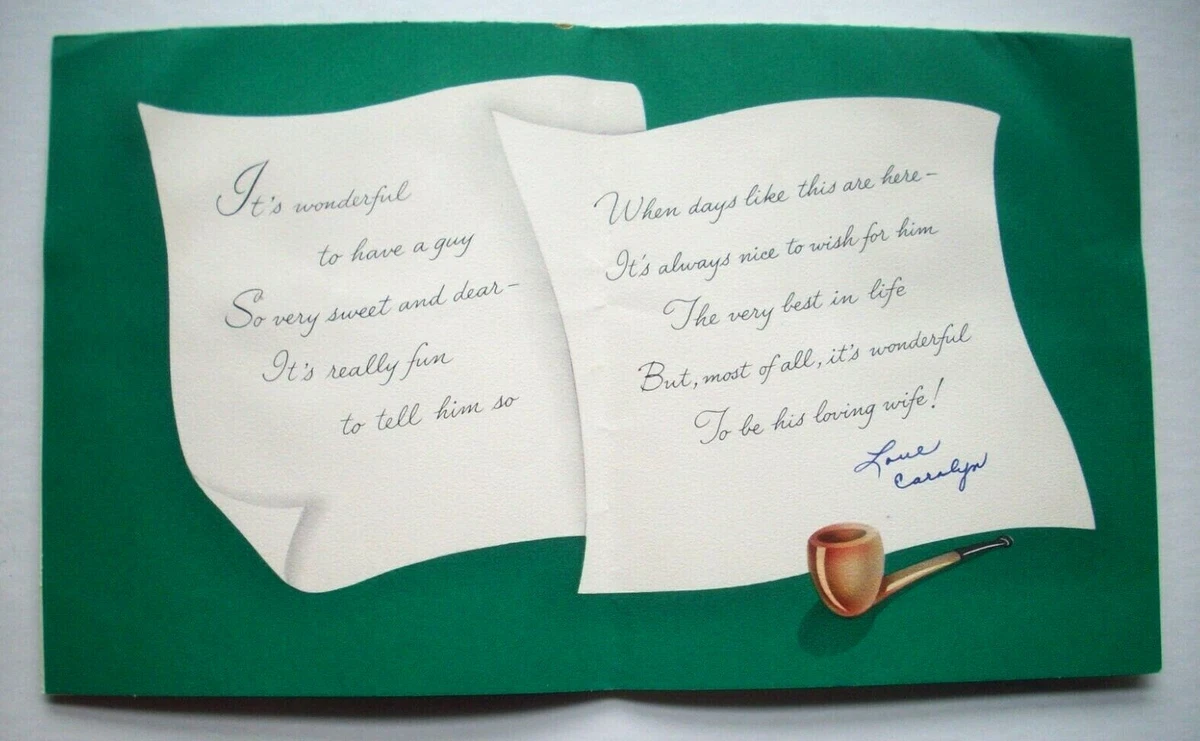 It's wonderful
to have a guy
So very sweet and dear—
It's really fun
to tell him so
When days like this are here—
It's always nice to wish for him
The very best in life
But, most of all, it's wonderful
To be his loving wife!
Love
Carolyn